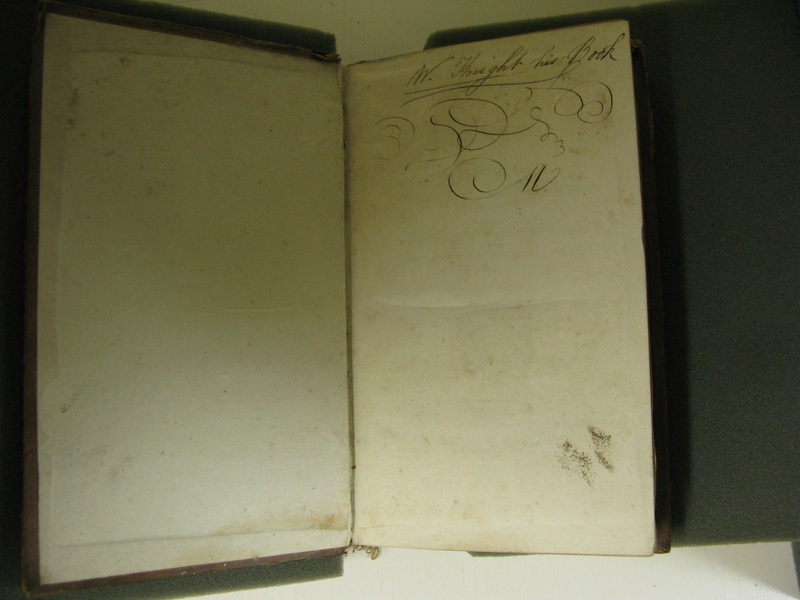 W. Knight his Book
W